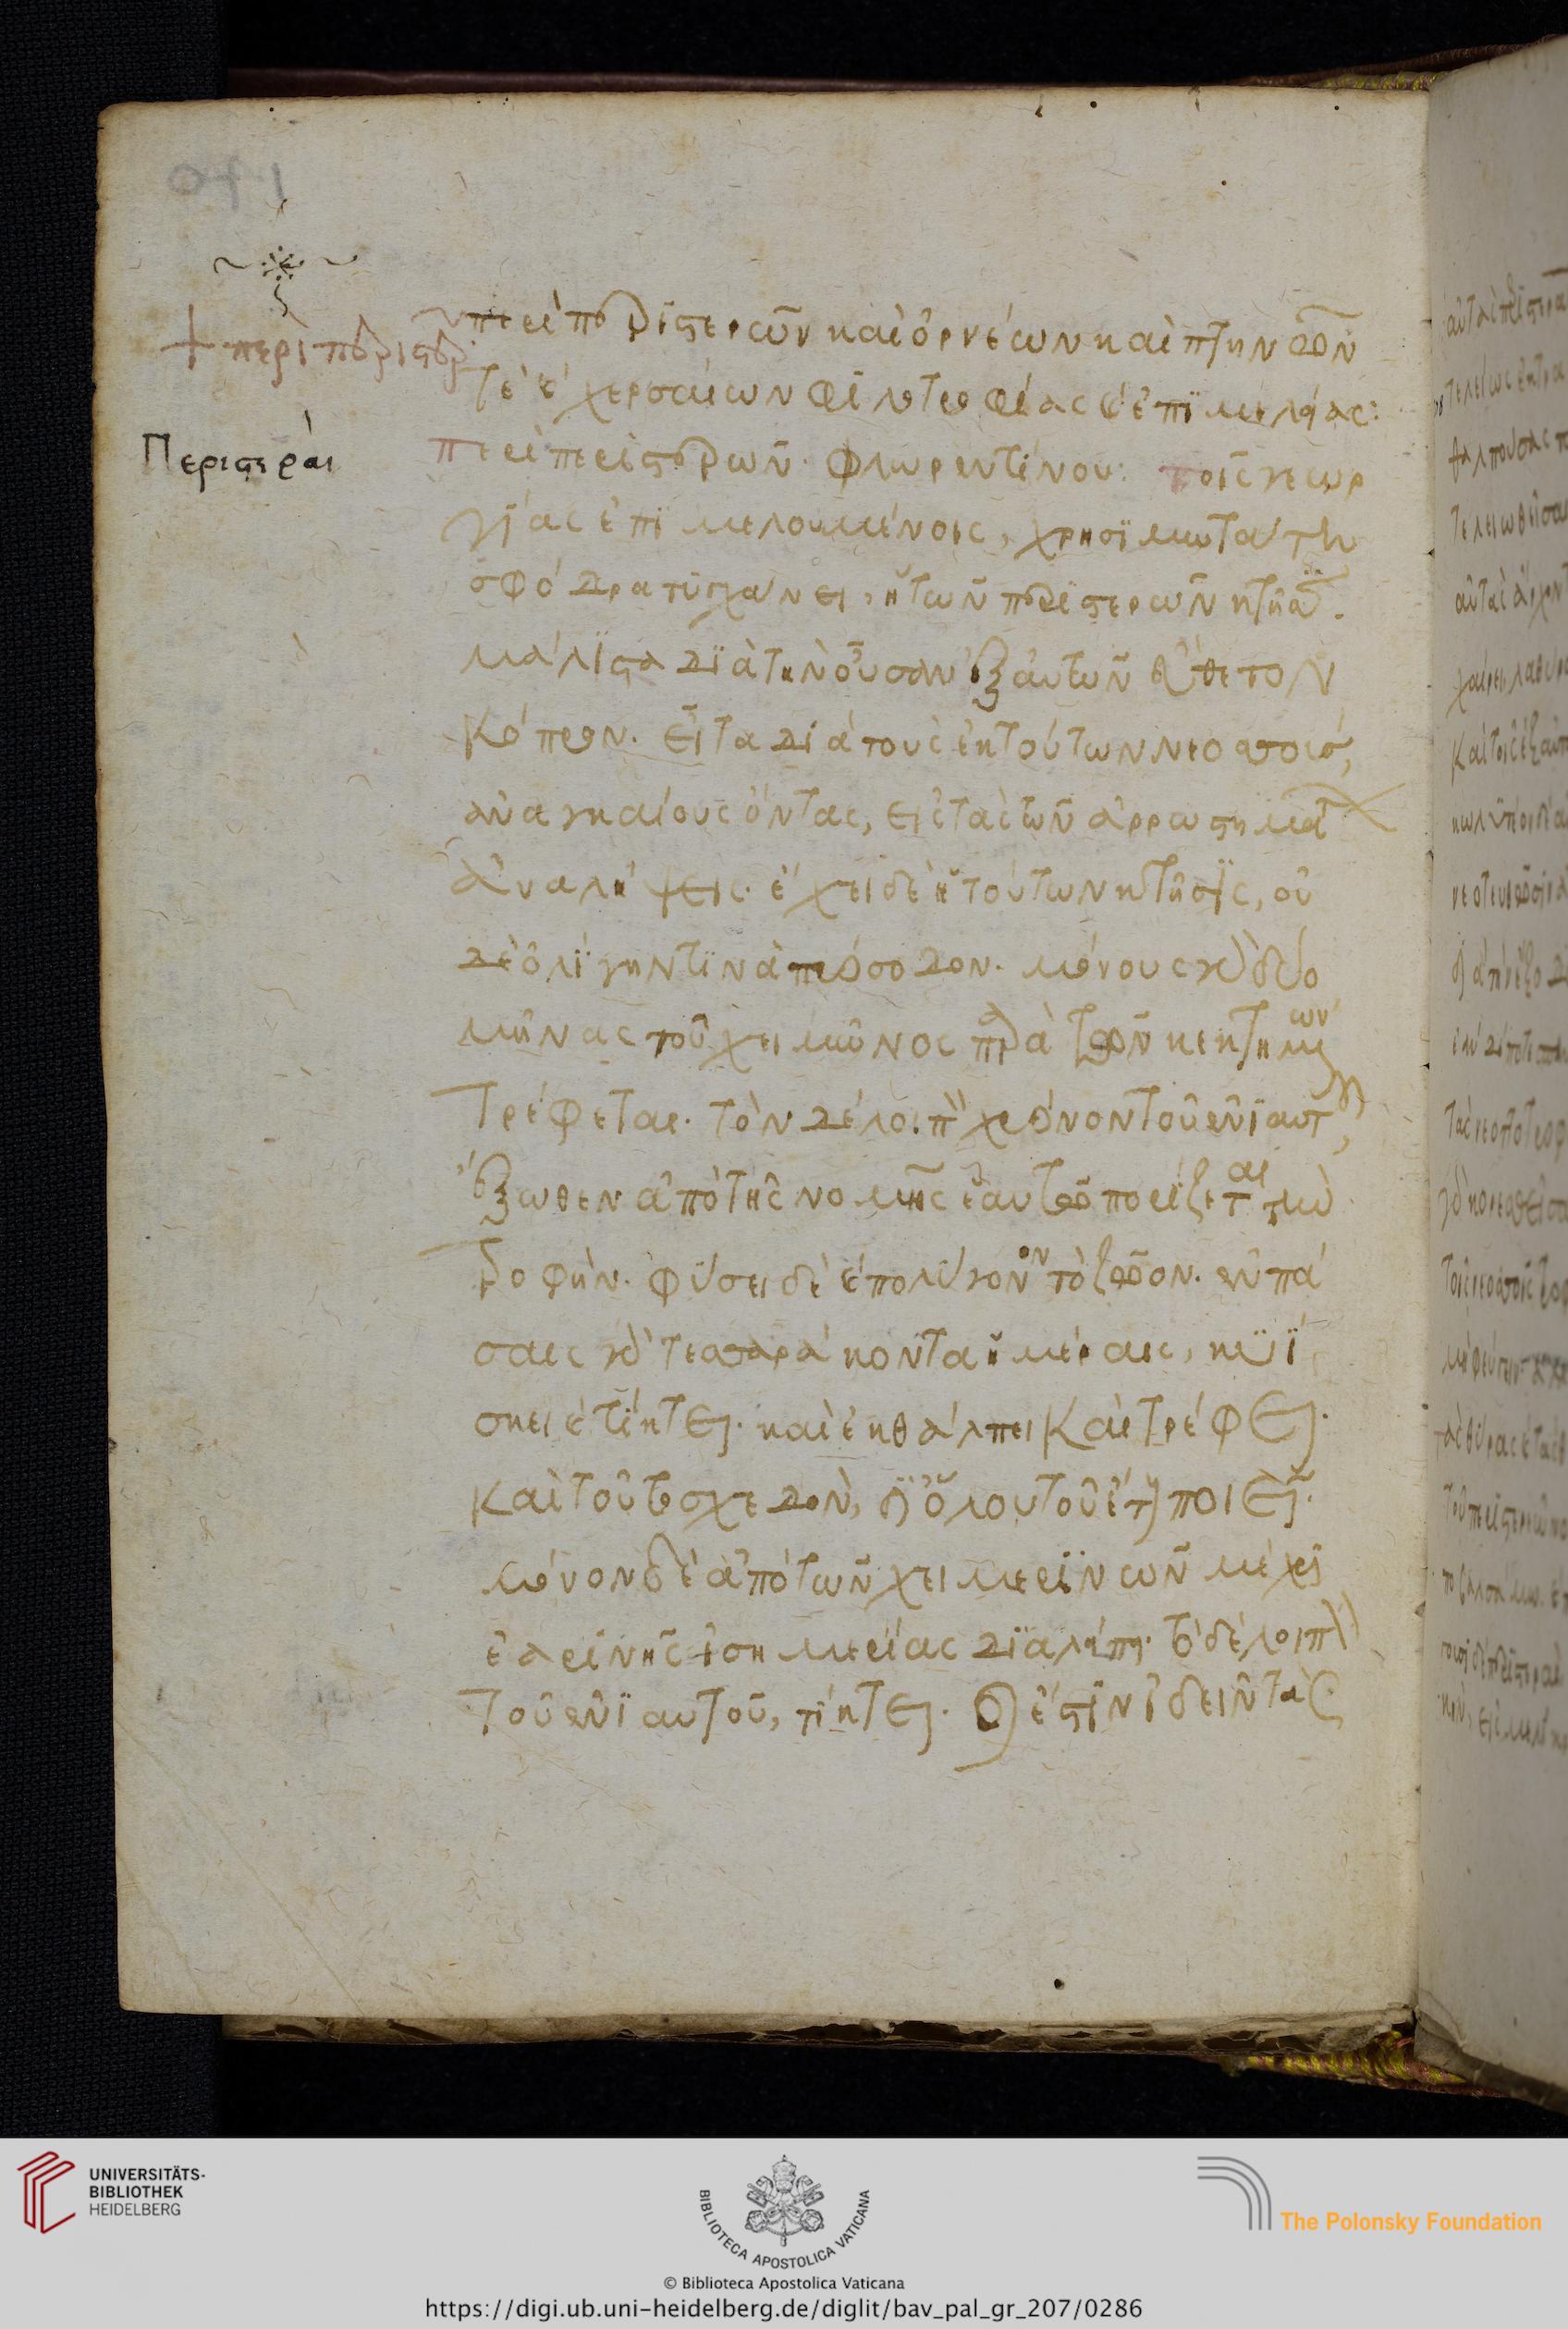 περὶ περιστερῶν
Περιστεραί
περὶ περιστερῶν καὶ ὀρνέων καὶ πτηνῶν
τὲ καὶ χερσαίων φιλοτροφίας καὶ ἐπιμελείας:
περὶ περιστερῶν. φλωρεντίνου: τοῖς γεωρ
γίας ἐπιμελουμένοις, χρησιμωτάτη
σφόδρα τυγχάνει, ἡ τῶν περιστερῶν κτῆσις.
μάλιστα διὰ τὴν οὖσαν ἐξ αὐτῶν εὔθετον
κόπρον. εἶτα διὰ τοὺς ἐκ τούτων νεοσσοὺς,
ἀναγκαίους ὄντας, εἰς τὰς τῶν ἀρρωστημάτων
ἀναλήψεις. ἔχει δὲ ἡ τούτων κτῆσις, οὐ
δὲ ὀλίγην τινὰ πρόσοδον. μόνους γὰρ δύο
μῆνας τοῦ χειμῶνος παρὰ τῶν κεκτημένων
τρέφεται. τὸν δὲ λοιπὸν χρόνον τοῦ ἐνιαυτοῦ,
ἔξωθεν ἀπὸ τῆς νομῆς ἑαυτῷ πορίζεται τὴν
τροφήν. φύσει δὲ πολύγονον τὸ ζῶον. ἐν πά
σαις γὰρ τεσσαράκοντα ἡμέραις, κυΐ
σκει καὶ τίκτει. καὶ ἐκθάλπει καὶ τρέφει.
καὶ τοῦτο σχεδὸν, δι' ὅλου τοῦ ἔτους ποιεῖ.
μόνον δὲ ἀπὸ τῶν χειμερινῶν μέχρι
ἐαρινῆς ἰσημερίας διαλείπει. τὸ δὲ λοιπὸν
τοῦ ἐνιαυτοῦ, τίκτει. καὶ ἔστιν ἰδεῖν τὰς
UNIVERSITÄTS-
BIBLIOTHEK
HEIDELBERG
BIBLIOTECA APOSTOLICA VATICANA
The Polonsky Foundation
© Biblioteca Apostolica Vaticana
https://digi.ub.uni-heidelberg.de/diglit/bav_pal_gr_207/0286